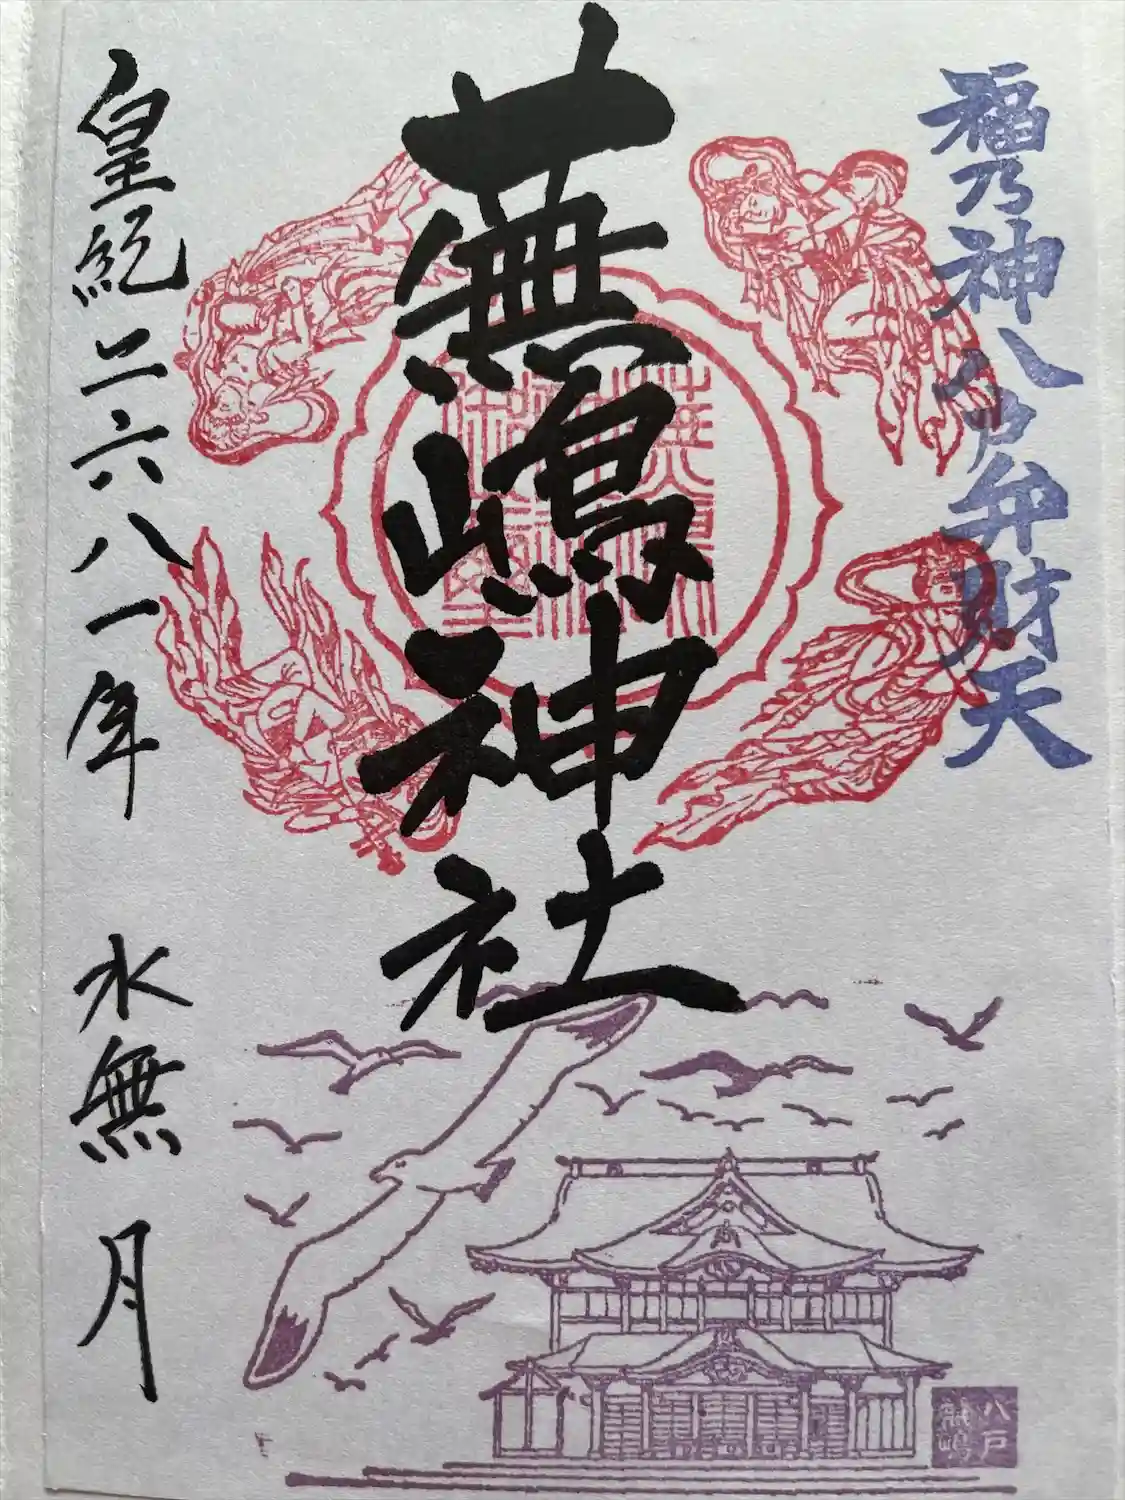 福乃神八戸弁財天
蕪嶋神社
皇紀二六八一年 水無月
八戸
蕪嶋